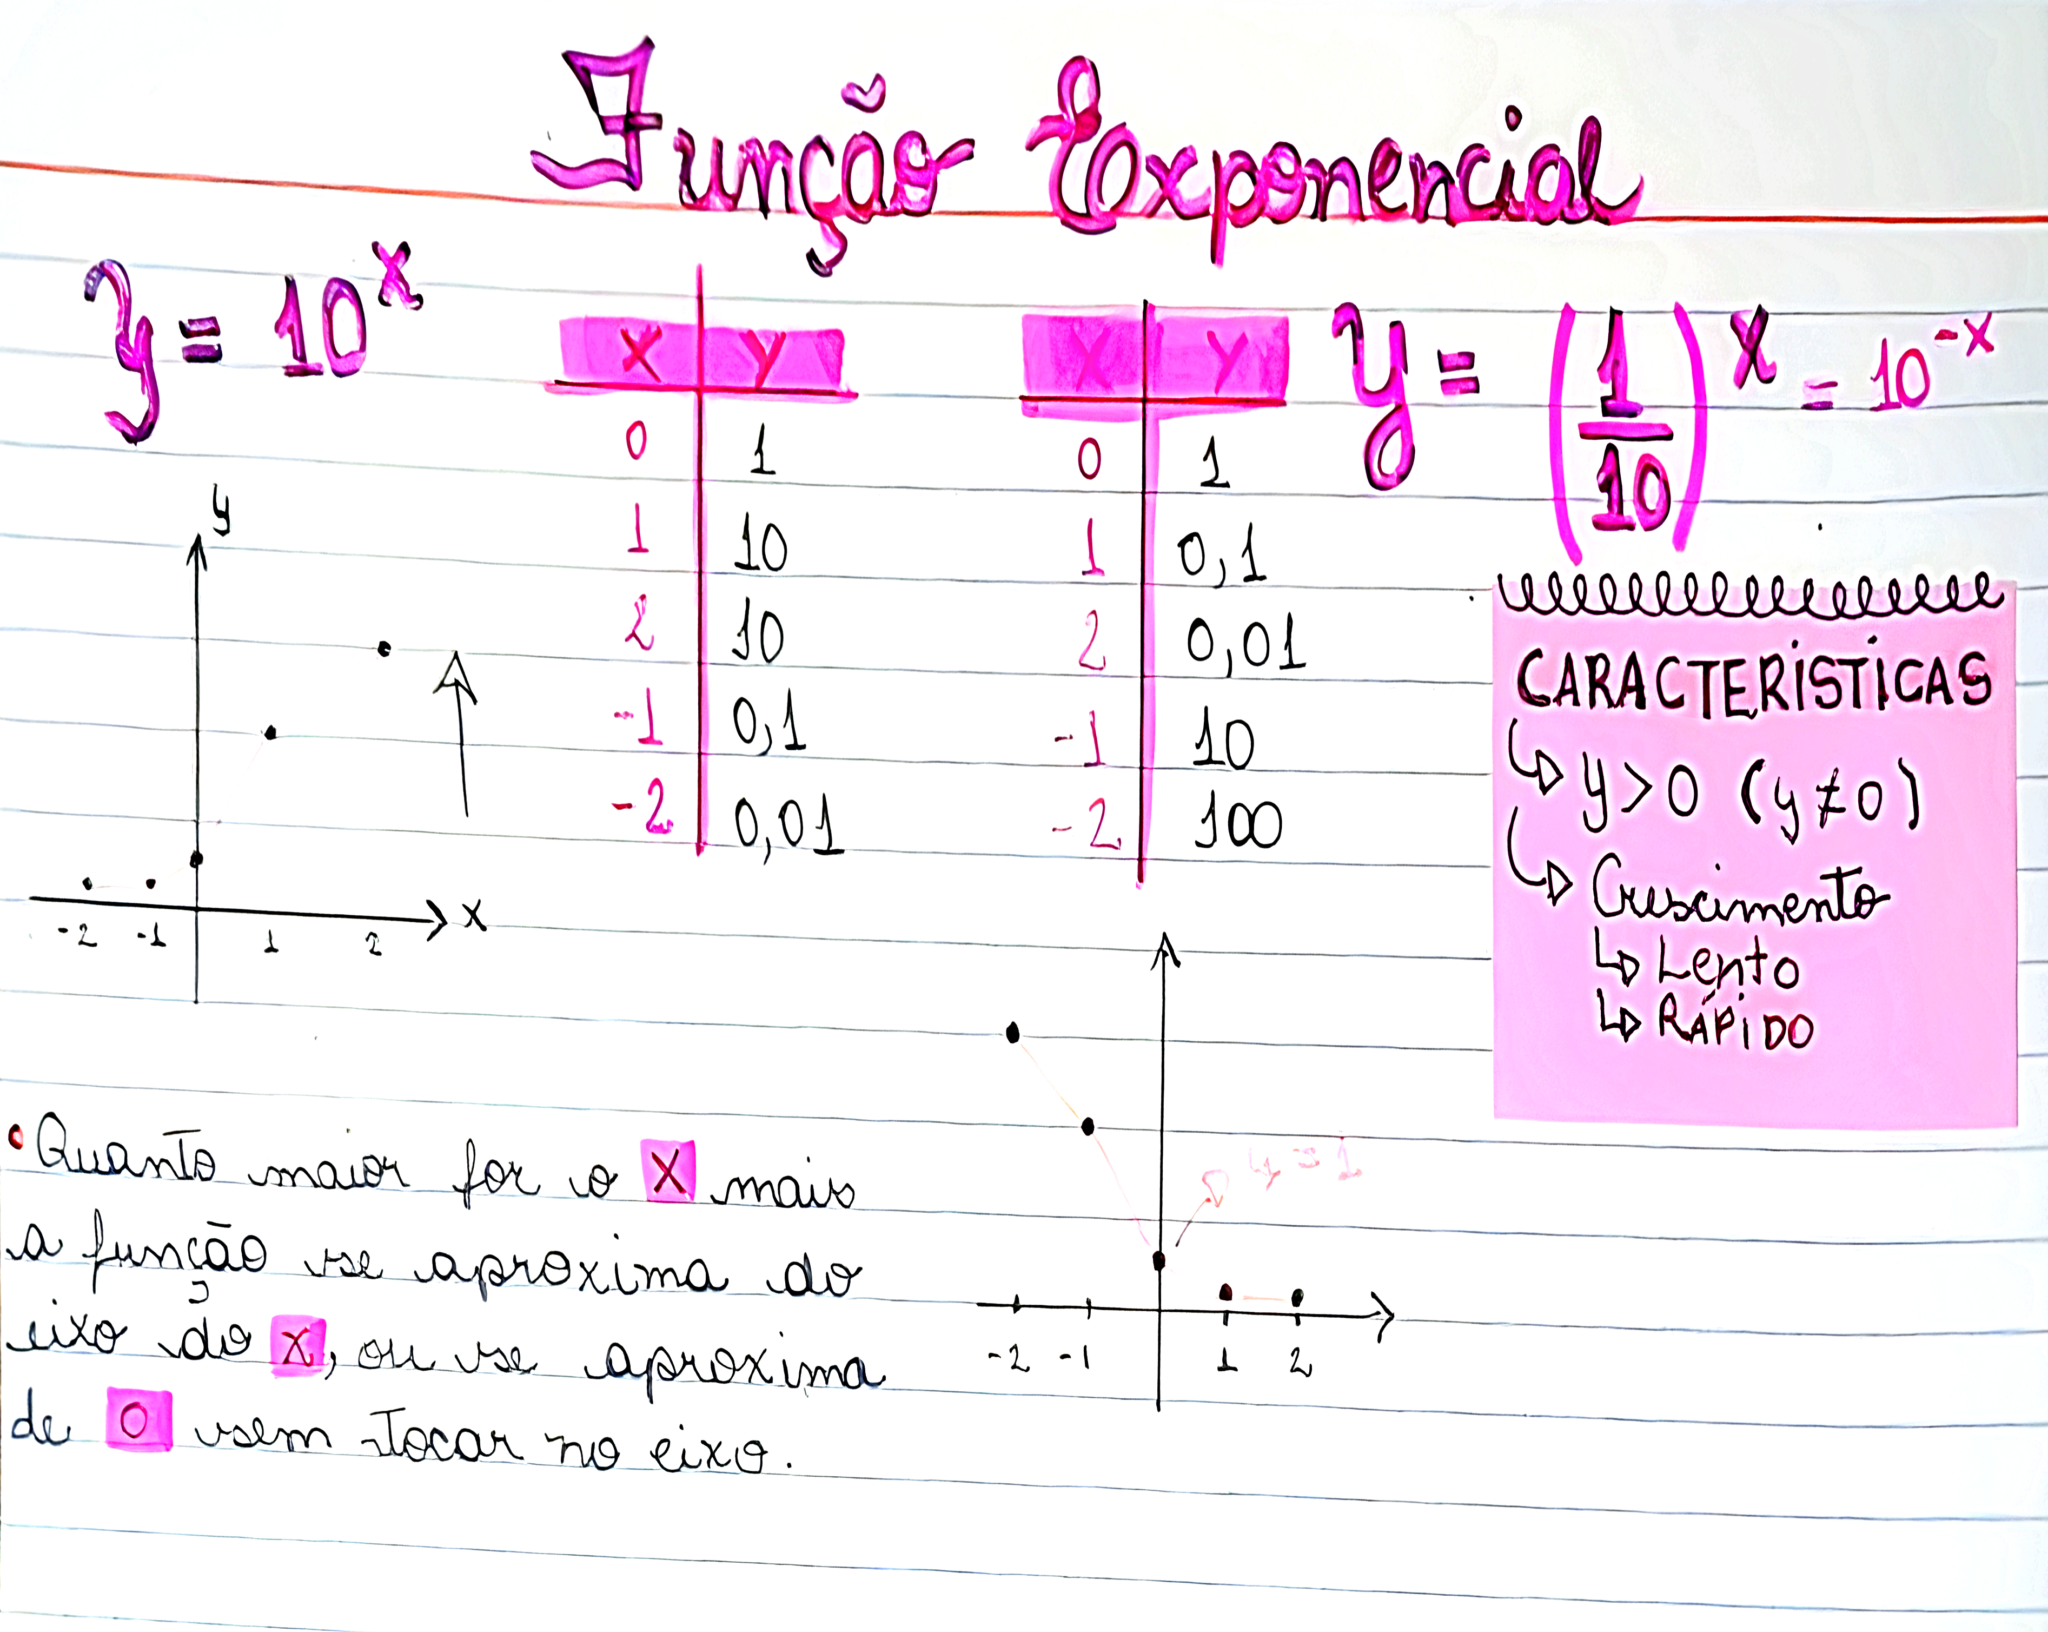 Função Exponencial
y = 10^x
x y
0 1
1 10
2 10
-1 0,1
-2 0,01
x y
0 1
1 0,1
2 0,01
-1 10
-2 100
y = (1/10)^x = 10^-x
y
x
-2 -1 1 2
CARACTERÍSTICAS
↳ y>0 (y≠0)
↳ Crescimento
↳ Lento
↳ RÁPIDO
y = 1
-2 -1 1 2
• Quanto maior for o x mais
a função se aproxima do
eixo do x, ou se aproxima
de 0 sem tocar no eixo.